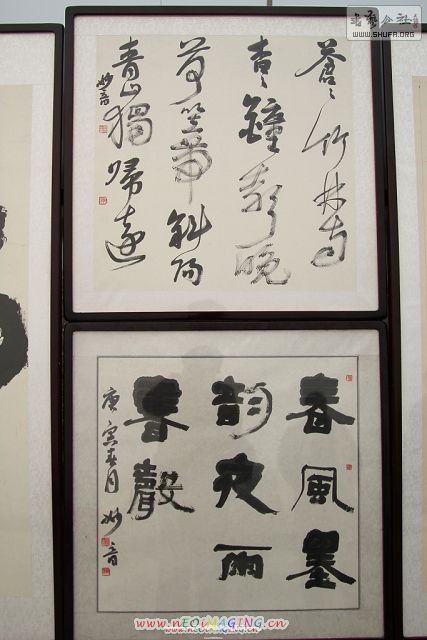 書藝公社
WWW.SHUFA.ORG
蒼〻竹林寺
杳〻鐘聲晚
荷笠帶斜陽
青山獨歸遠
妙音
春風墨
韵夜雨
書聲
庚寅春月 妙音
www.nEOiMAGiNG.cn